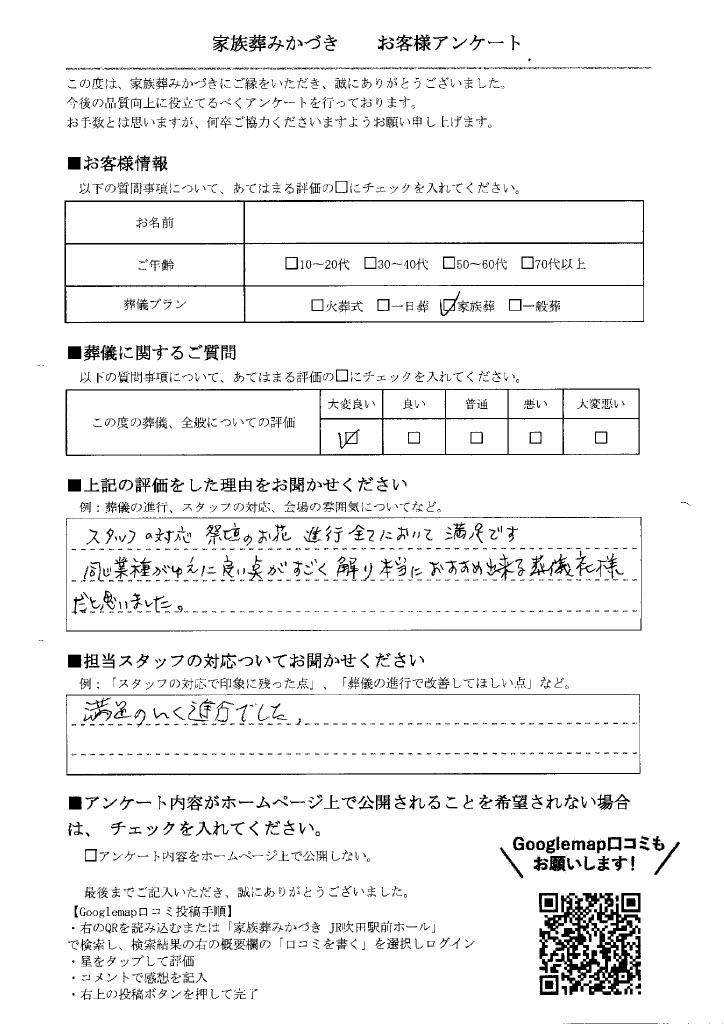 家族葬みかづき　　お客様アンケート
この度は、家族葬みかづきにご縁をいただき、誠にありがとうございました。
今後の品質向上に役立てるべくアンケートを行っております。
お手数とは思いますが、何卒ご協力くださいますようお願い申し上げます。
■お客様情報
以下の質問事項について、あてはまる評価の□にチェックを入れてください。
お名前
ご年齢 □10～20代 □30～40代 □50～60代 □70代以上
葬儀プラン □火葬式 □一日葬 ☑家族葬 □一般葬
■葬儀に関するご質問
以下の質問事項について、あてはまる評価の□にチェックを入れてください。
大変良い 良い 普通 悪い 大変悪い
この度の葬儀、全般についての評価 ☑ □ □ □ □
■上記の評価をした理由をお聞かせください
例：葬儀の進行、スタッフの対応、会場の雰囲気についてなど。
スタッフの対応 祭壇のお花 進行全てにおいて 満足です
同じ業種がゆえに良い点がすごく解り本当におすすめ出来る葬儀社様
だと思いました。
■担当スタッフの対応ついてお聞かせください
例：「スタッフの対応で印象に残った点」、「葬儀の進行で改善してほしい点」など。
満足のいく進行でした。
■アンケート内容がホームページ上で公開されることを希望されない場合
は、 チェックを入れてください。
□アンケート内容をホームページ上で公開しない。
Googlemap口コミも
お願いします！
最後までご記入いただき、誠にありがとうございました。
【Googlemap口コミ投稿手順】
・右のQRを読み込むまたは「家族葬みかづき JR吹田駅前ホール」
で検索し、検索結果の右の概要欄の「口コミを書く」を選択しログイン
・星をタップして評価
・コメントで感想を記入
・右上の投稿ボタンを押して完了